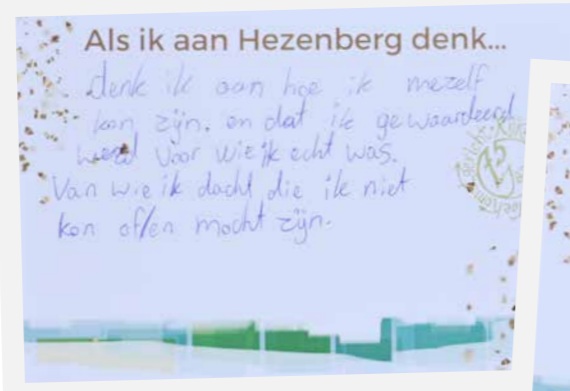 Als ik aan Hezenberg denk...
denk ik aan hoe ik mezelf
kon zijn. en dat ik gewaardeerd
werd voor wie ik echt was.
Van wie ik dacht die ik niet
kon of/en mocht zijn.
75